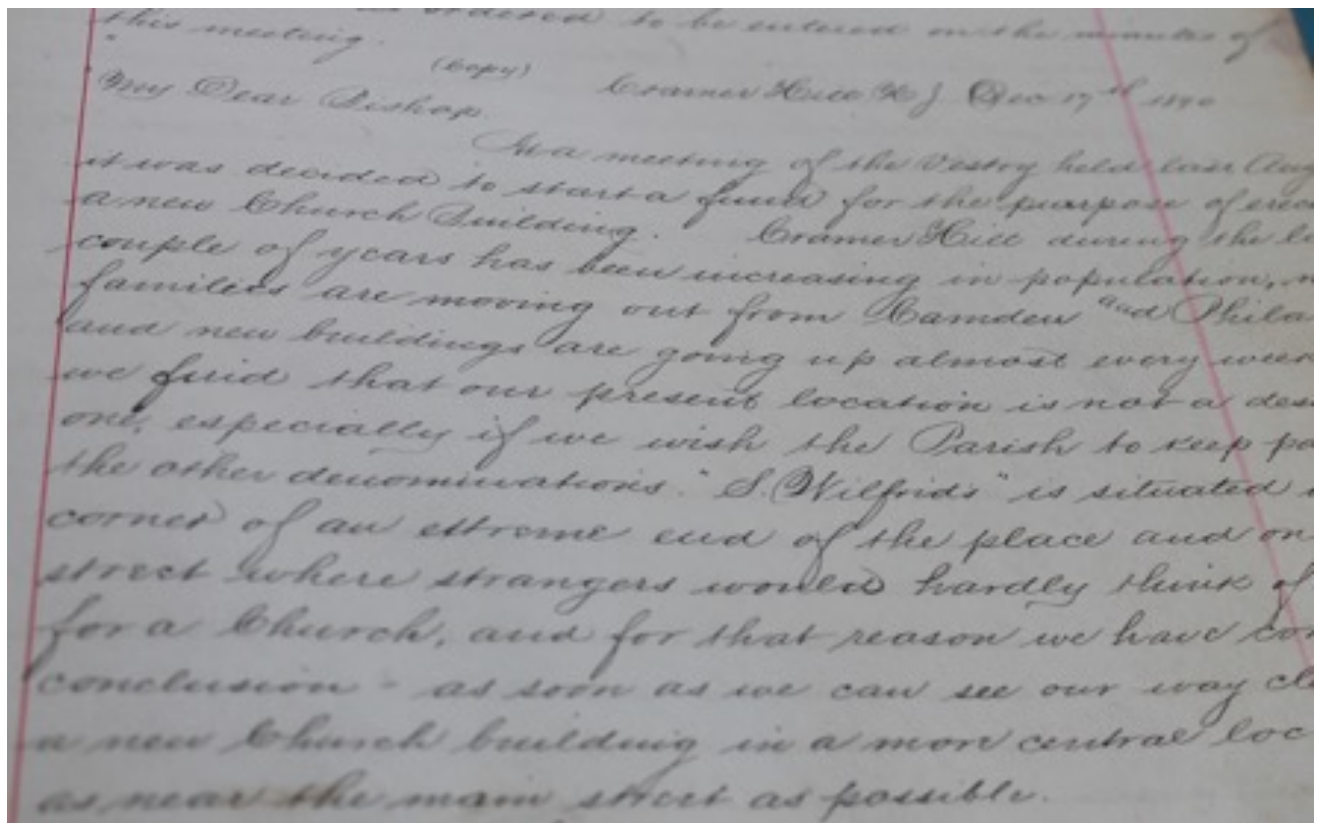 as ordered to be entered on the minutes of
this meeting.
(Copy)
Cramer Hill N J Dec 17th 1890
My Dear Bishop.
At a meeting of the Vestry held last Aug
it was decided to start a fund for the purpose of
a new Church Building. Cramer Hill during the
couple of years has been increasing in population,
families are moving out from Camden and Phila
and new buildings are going up almost every week
we find that our present location is not a
one, especially if we wish the Parish to keep
the other denominations. "S. Wilfrids" is situated
corner of an extreme end of the place and on
street where strangers would hardly think of
for a Church, and for that reason we have
conclusion - as soon as we can see our way
a new Church building in a more central loc
as near the main street as possible.